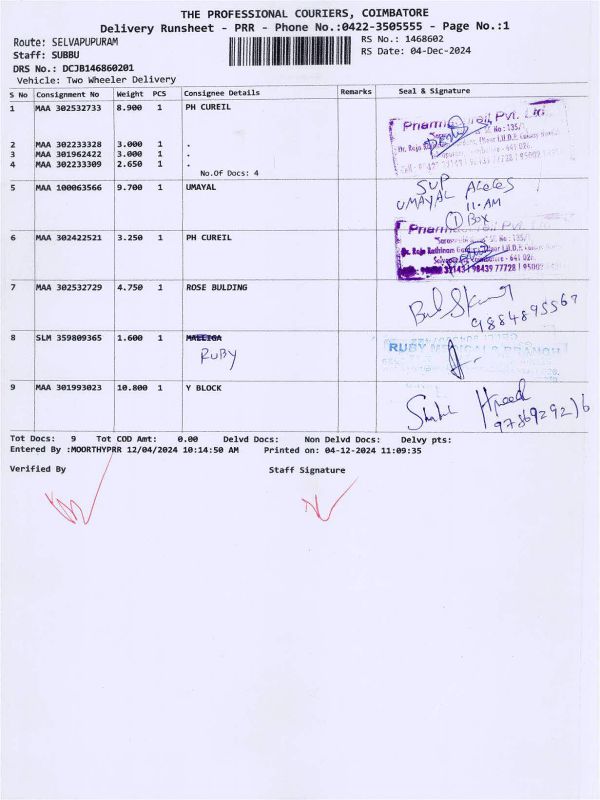 THE PROFESSIONAL COURIERS, COIMBATORE
Delivery Runsheet - PRR - Phone No.:0422-3505555 - Page No.:1
Route: SELVAPUPURAM
RS No.: 1468602
Staff: SUBBU
RS Date: 04-Dec-2024
DRS No.: DCJB146860201
Vehicle: Two Wheeler Delivery
S No Consignment No Weight PCS Consignee Details Remarks Seal & Signature
1 MAA 302532733 8.900 1 PH CUREIL
2 MAA 302233328 3.000 1 .
3 MAA 301962422 3.000 1 .
4 MAA 302233309 2.650 1 .
No.Of Docs: 4
5 MAA 100063566 9.700 1 UMAYAL
SUP
UMAYAL
11.AM
1 BOX
6 MAA 302422521 3.250 1 PH CUREIL
7 MAA 302532729 4.750 1 ROSE BULDING
9884895567
8 SLM 359809365 1.600 1 MALLIGA
RUBY
RUBY MEDICALS BRANCH
9 MAA 301993023 10.800 1 Y BLOCK
9786929216
Tot Docs: 9 Tot COD Amt: 0.00 Delvd Docs: Non Delvd Docs: Delvy pts:
Entered By :MOORTHYPRR 12/04/2024 10:14:50 AM Printed on: 04-12-2024 11:09:35
Verified By Staff Signature